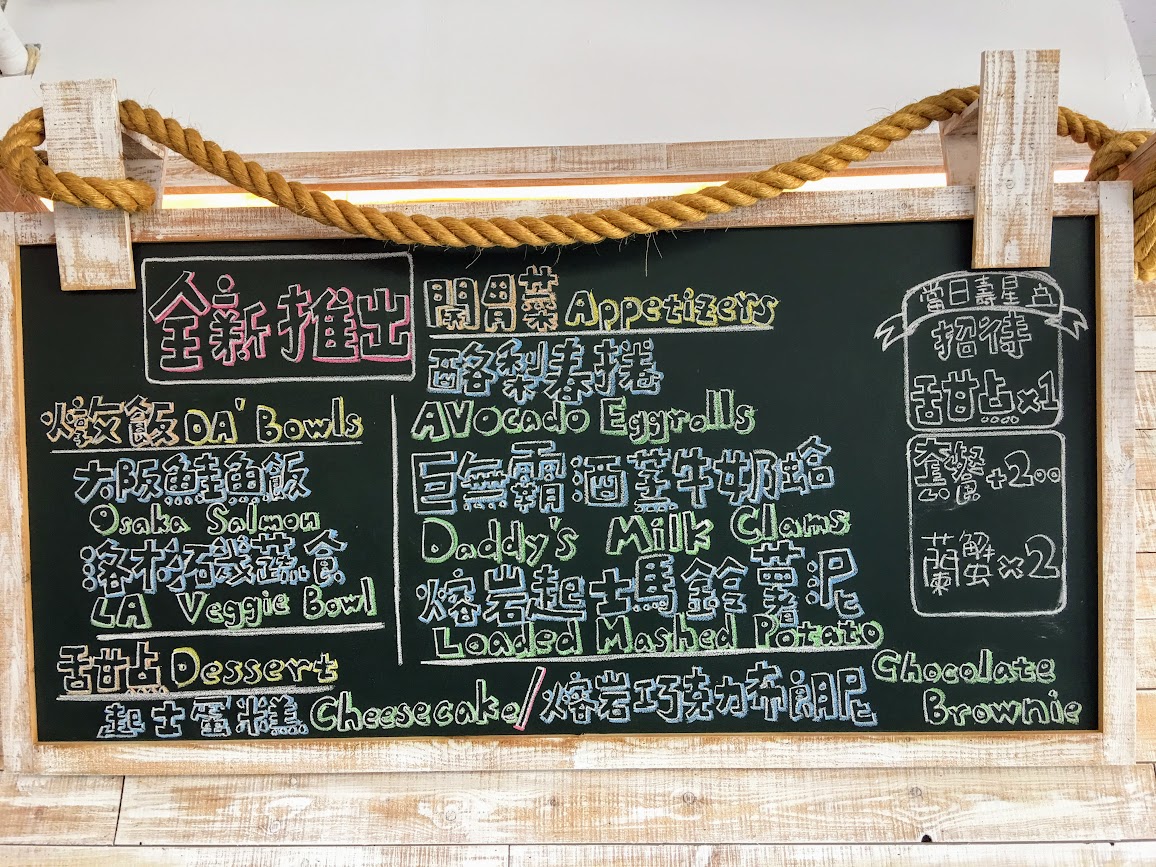 全新推出
燉飯 DA' Bowls
大阪鮭魚飯
Osaka Salmon
洛杉磯蔬食
LA Veggie Bowl
甜點 Dessert
起士蛋糕 Cheesecake/熔岩巧克力布朗尼 Chocolate Brownie
開胃菜 Appetizers
酪梨春捲
AVocado Eggrolls
巨無霸酒蒸牛奶蛤
Daddy's Milk Clams
熔岩起士馬鈴薯泥
Loaded Mashed Potato
當日壽星
招待
甜點x1
套餐+200
蟹x2